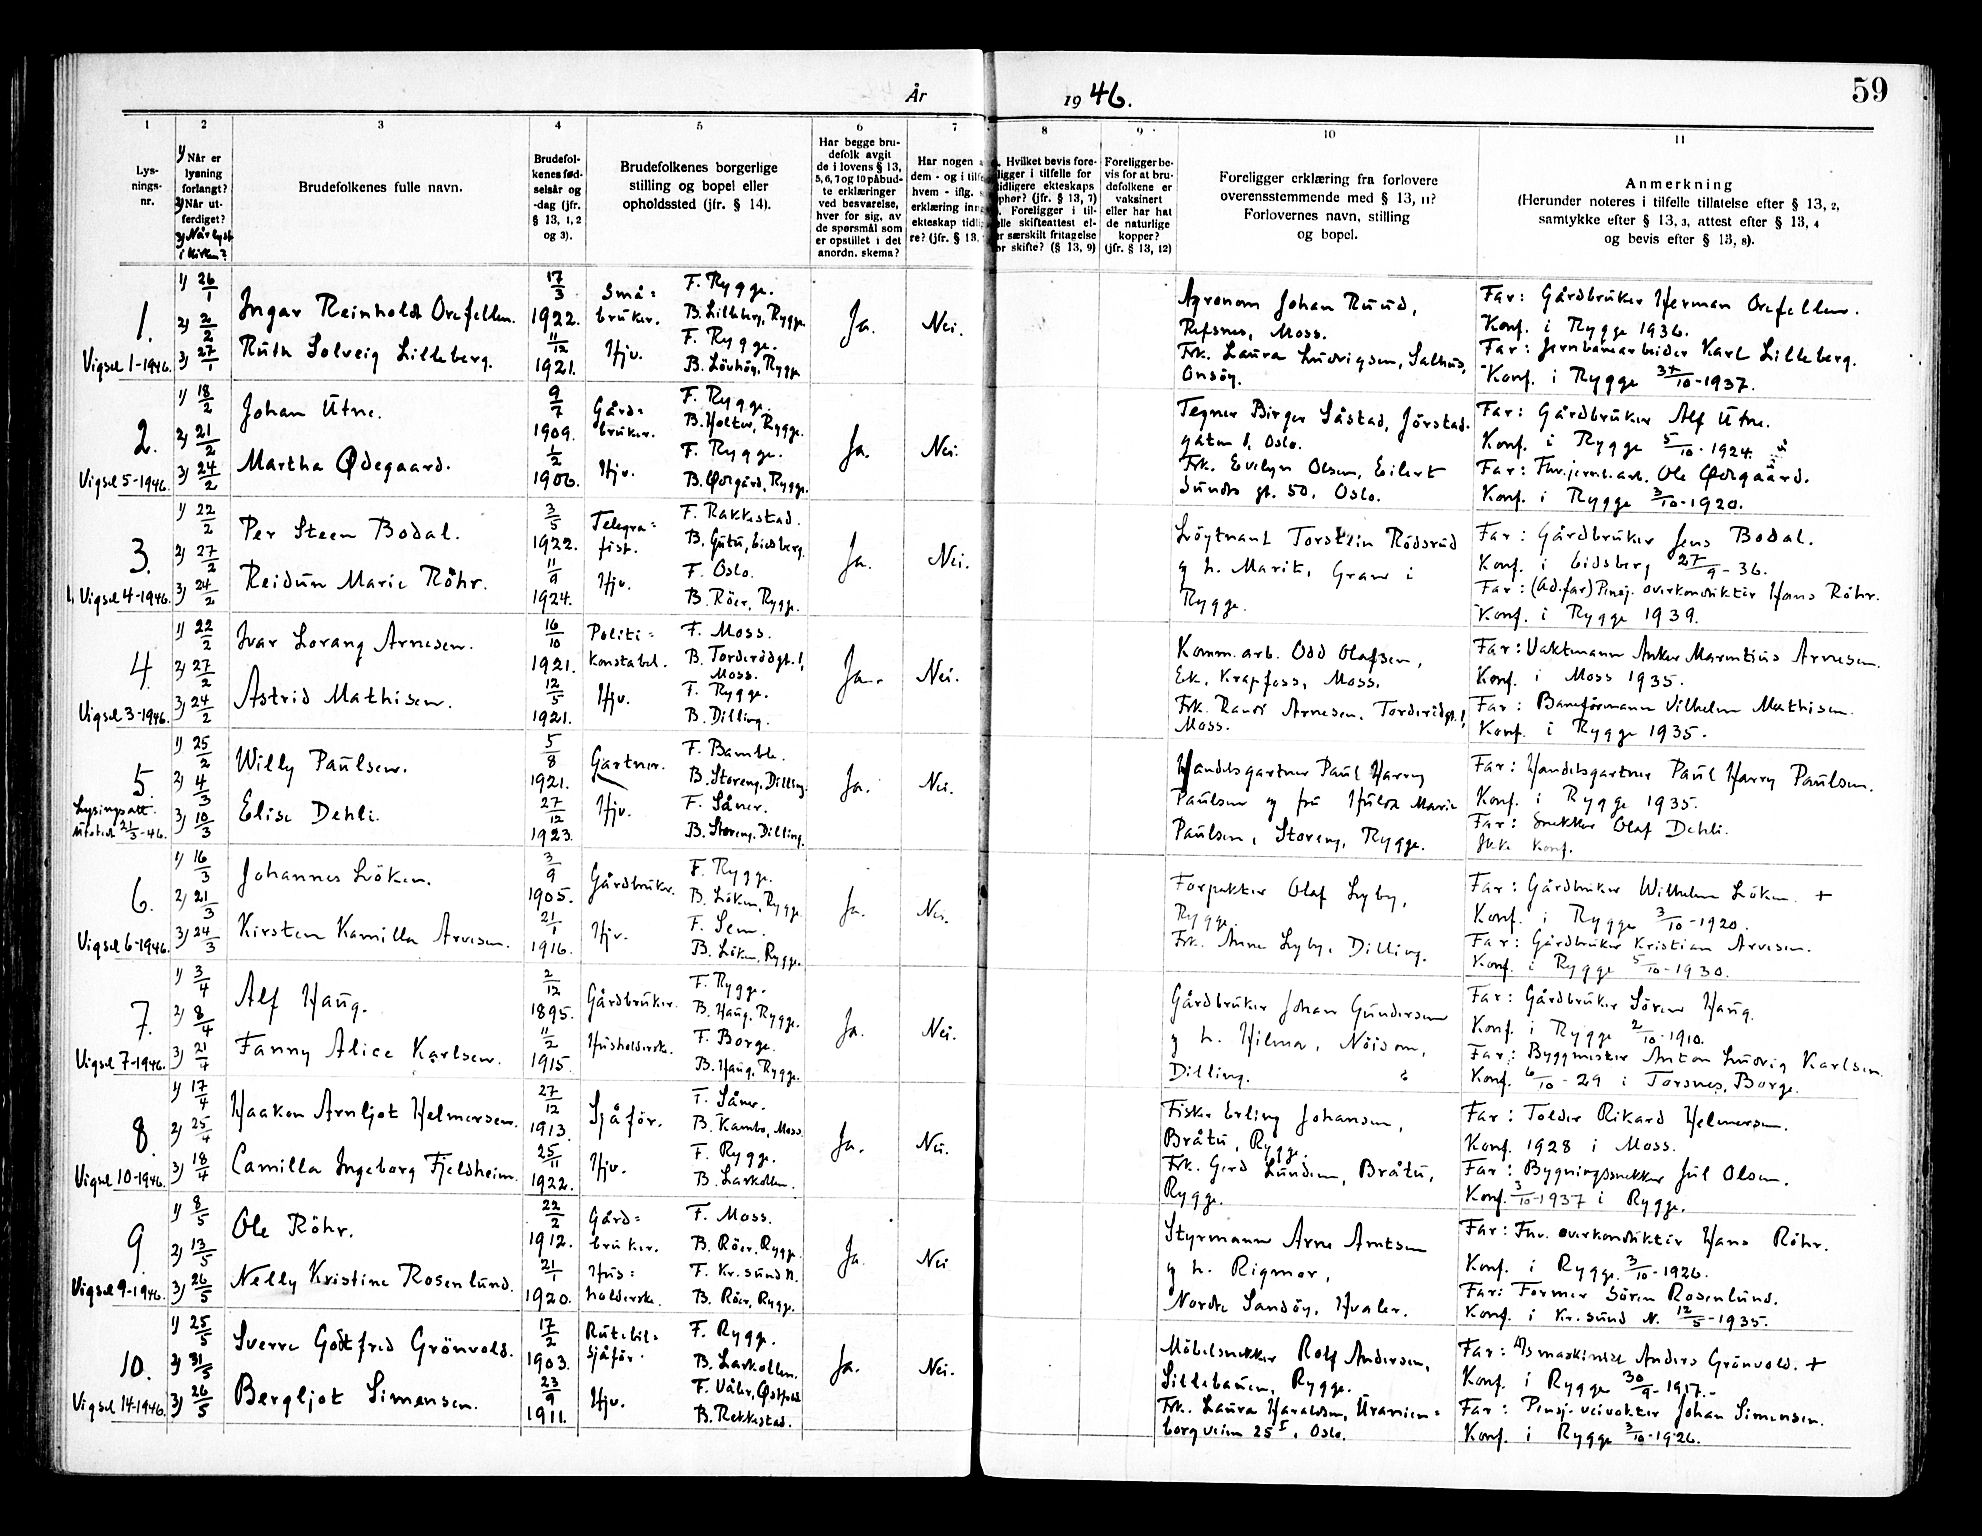 År 1946. 59
1 2 3 4 5 6 7 8 9 10 11
Lys-
nings-
nr.
1) Når er
lysning
forlangt?
2) Når ut-
ferdiget?
3) Når lyst
i kirken?
Brudefolkenes fulle navn.
Brudefol-
kenes fød-
selsår og
-dag (jfr.
§ 13, 1, 2
og 3).
Brudefolkenes borgerlige
stilling og bopel eller
opholdssted (jfr. § 14).
Har begge bru-
defolk avgit
de i lovens § 13,
5, 6, 7 og 10 påbud-
te erklæringer
ved besvarelse,
hver for sig, av
de spørsmål som
er opstillet i det
anordn. skema?
Har nogen
dem - og i tilf
hvem - iflg.
erklæring inn
ekteskap tidli
re? (jfr. § 13,
Hvilket bevis fore-
ligger i tilfelle for
tidligere ekteskaps
ophør? (jfr. § 13, 7)
Foreligger i til-
felle skifteattest el-
er særskilt fritagelse
for skifte? (§ 13, 9)
Foreligger be-
vis for at bru-
defolkene er
vaksinert
eller har hat
de naturlige
kopper?
(jfr. § 13, 12)
Foreligger erklæring fra forlovere
overensstemmende med § 13, 11?
Forlovernes navn, stilling
og bopel.
Anmerkning
(Herunder noteres i tilfelle tillatelse efter § 13, 2,
samtykke efter § 13, 3, attest efter § 13, 4
og bevis efter § 13, 8).
1.
Vigsel 1-1946.
1) 26/1
2) 2/2
3) 27/1
Ingar Reinholdt Orefellen.
Ruth Solveig Lilleberg.
17/3
1922.
11/12
1921.
Små=
bruker.
Hjv.
F. Rygge.
B. Lilleberg, Rygge
F. Rygge.
B. Lövhög, Rygge
Ja.
Nei.
Agronom Johan Ruud,
Refsnes, Moss.
Frk. Laura Ludvigsen, Salhus,
Onsöy.
Far: Gårdbruker Herman Orefellen.
Konf. i Rygge 1936.
Far: Jernbanearbeider Karl Lilleberg.
Konf. i Rygge /10-1937.
2.
Vigsel 5-1946.
1) 18/2
2) 21/2
3) 24/2
Johan Utne.
Martha Ødegaard.
9/7
1909.
1/2
1906.
Gård=
bruker.
Hjv.
F. Rygge.
B. Holter, Rygge.
F. Rygge.
B. Ødegård, Rygge.
Ja.
Nei.
Tegner Birger Såstad, Jörstad-
gaten 1, Oslo.
Frk. Evelyn Olsen, Eilert
Sundts gt. 50, Oslo.
Far: Gårdbruker Alf Utne.
Konf. i Rygge 5/10-1924.
Far: Fhv. jernb.arb. Ole Ødegaard.
Konf. i Rygge 3/10-1920.
3.
Vigsel 4-1946.
1) 22/2
2) 27/2
3) 24/2
Per Steen Bodal.
Reidun Marie Röhr.
3/5
1922.
11/9
1924.
Telegra=
fist.
Hjv.
F. Rakkestad.
B. Gutu, Eidsberg.
F. Oslo.
B. Röer, Rygge.
Ja.
Nei.
Löytnant Torstein Rödsrud
og h. Marit, Gran i
Rygge.
Far: Gårdbruker Jens Bodal.
Konf. i Eidsberg 27/9-36.
Far: (Ad. far) Pensj. overkonduktör Hans Röhr.
Konf. i Rygge 1939.
4.
Vigsel 3-1946.
1) 22/2
2) 27/2
3) 24/2
Ivar Lorang Arnesen.
Astrid Mathisen.
16/10
1921.
12/5
1921.
Politi=
konstabel.
Hjv.
F. Moss.
B. Torderödgt. 1,
Moss.
F. Rygge.
B. Dilling.
Ja.
Nei.
Komm.arb. Odd Olafsen,
Ek, Krapfoss, Moss.
Frk. Randi Arnesen, Torderödgt. 1,
Moss.
Far: Vaktmann Anker Marentius Arnesen.
Konf. i Moss 1935.
Far: Baneformann Vilhelm Mathisen.
Konf. i Rygge 1935.
5.
Lysingsatt.
utstedt 21/3-46.
1) 25/2
2) 4/3
3) 10/3
Willy Paulsen.
Elise Dehli.
5/8
1921.
27/12
1923.
Gartner.
Hjv.
F. Bamble.
B. Storeng, Dilling.
F. Såner.
B. Storeng, Dilling.
Ja.
Nei.
Handelsgartner Paul Harry
Paulsen og fru Hulda Marie
Paulsen, Storeng, Rygge.
Far: Handelsgartner Paul Harry Paulsen.
Konf. i Rygge 1935.
Far: Snekker Olaf Dehli.
Ikke konf.
6.
Vigsel 6-1946.
1) 16/3
2) 21/3
3) 24/3
Johannes Löken.
Kirsten Kamilla Arvesen.
3/9
1905.
21/1
1916.
Gårdbruker.
Hjv.
F. Rygge.
B. Löken, Rygge
F. Sem.
B. Löken, Rygge.
Ja.
Nei.
Forpakter Olaf Lyby,
Rygge.
Frk. Anne Lyby, Dilling.
Far: Gårdbruker Wilhelm Löken. +
Konf. i Rygge 3/10-1920.
Far: Gårdbruker Kristian Arvesen.
Konf. i Rygge 5/10-1930.
7.
Vigsel 7-1946.
1) 3/4
2) 8/4
3) 21/4
Alf Haug.
Fanny Alice Karlsen.
2/12
1895.
11/2
1915.
Gårdbruker.
Husholderske.
F. Rygge.
B. Haug, Rygge.
F. Borge.
B. Haug, Rygge.
Ja.
Nei.
Gårdbruker Johan Gundersen
og h. Hilma, Nöisom,
Dilling.
Far: Gårdbruker Sören Haug.
Konf. i Rygge 2/10-1910.
Far: Byggmester Anton Ludvig Karlsen.
Konf. 6/10-29 i Torsnes, Borge.
8.
Vigsel 10-1946.
1) 17/4
2) 25/4
3) 18/4
Haakon Arnljot Helmersen.
Camilla Ingeborg Fjeldheim.
27/12
1913.
25/11
1922.
Sjåför.
Hjv.
F. Såner.
B. Kambo, Moss.
F. Rygge.
B. Larkollen.
Ja.
Nei.
Fisker Erling Johansen,
Bråtu, Rygge.
Frk. Gerd Lunden, Bråtu,
Rygge.
Far: Tolder Rikard Helmersen.
Konf. 1928 i Moss.
Far: Bygningssnekker Jul Olsen.
Konf. 3/10-1937 i Rygge.
9.
Vigsel 9-1946.
1) 8/5
2) 13/5
3) 26/5
Ole Röhr.
Nelly Kristine Rosenlund.
22/2
1912.
21/1
1920.
Gård=
bruker.
Hus=
holderske.
F. Moss.
B. Röer, Rygge.
F. Kr.sund N.
B. Röer, Rygge.
Ja.
Nei
Styrmann Arne Arntsen
og h. Rigmor,
Nordre Sandöy, Hvaler.
Far: Fhv. overkonduktör Hans Röhr.
Konf. i Rygge 3/10-1926.
Far: Former Sören Rosenlund.
Konf. i Kr.sund N. 12/5-1935.
10.
Vigsel 14-1946.
1) 25/5
2) 31/5
3) 26/5
Sverre Gottfred Grönvold.
Bergljot Simensen.
17/2
1903.
23/9
1911.
Rutebil=
sjåför.
Hjv.
F. Rygge.
B. Larkollen.
F. Våler, Østfold
B. Rakkestad.
Ja.
Nei.
Möbelsnekker Rolf Andersen,
Lillebauen, Rygge.
Frk. Laura Haraldsen, Uranien=
borgveien 25 I, Oslo.
Far: D/S maskinist Anders Grönvold. +
Konf. i Rygge 30/9-1917.-
Far: Pensj. veivokter Johan Simensen.
Konf. i Rygge 3/10-1926.